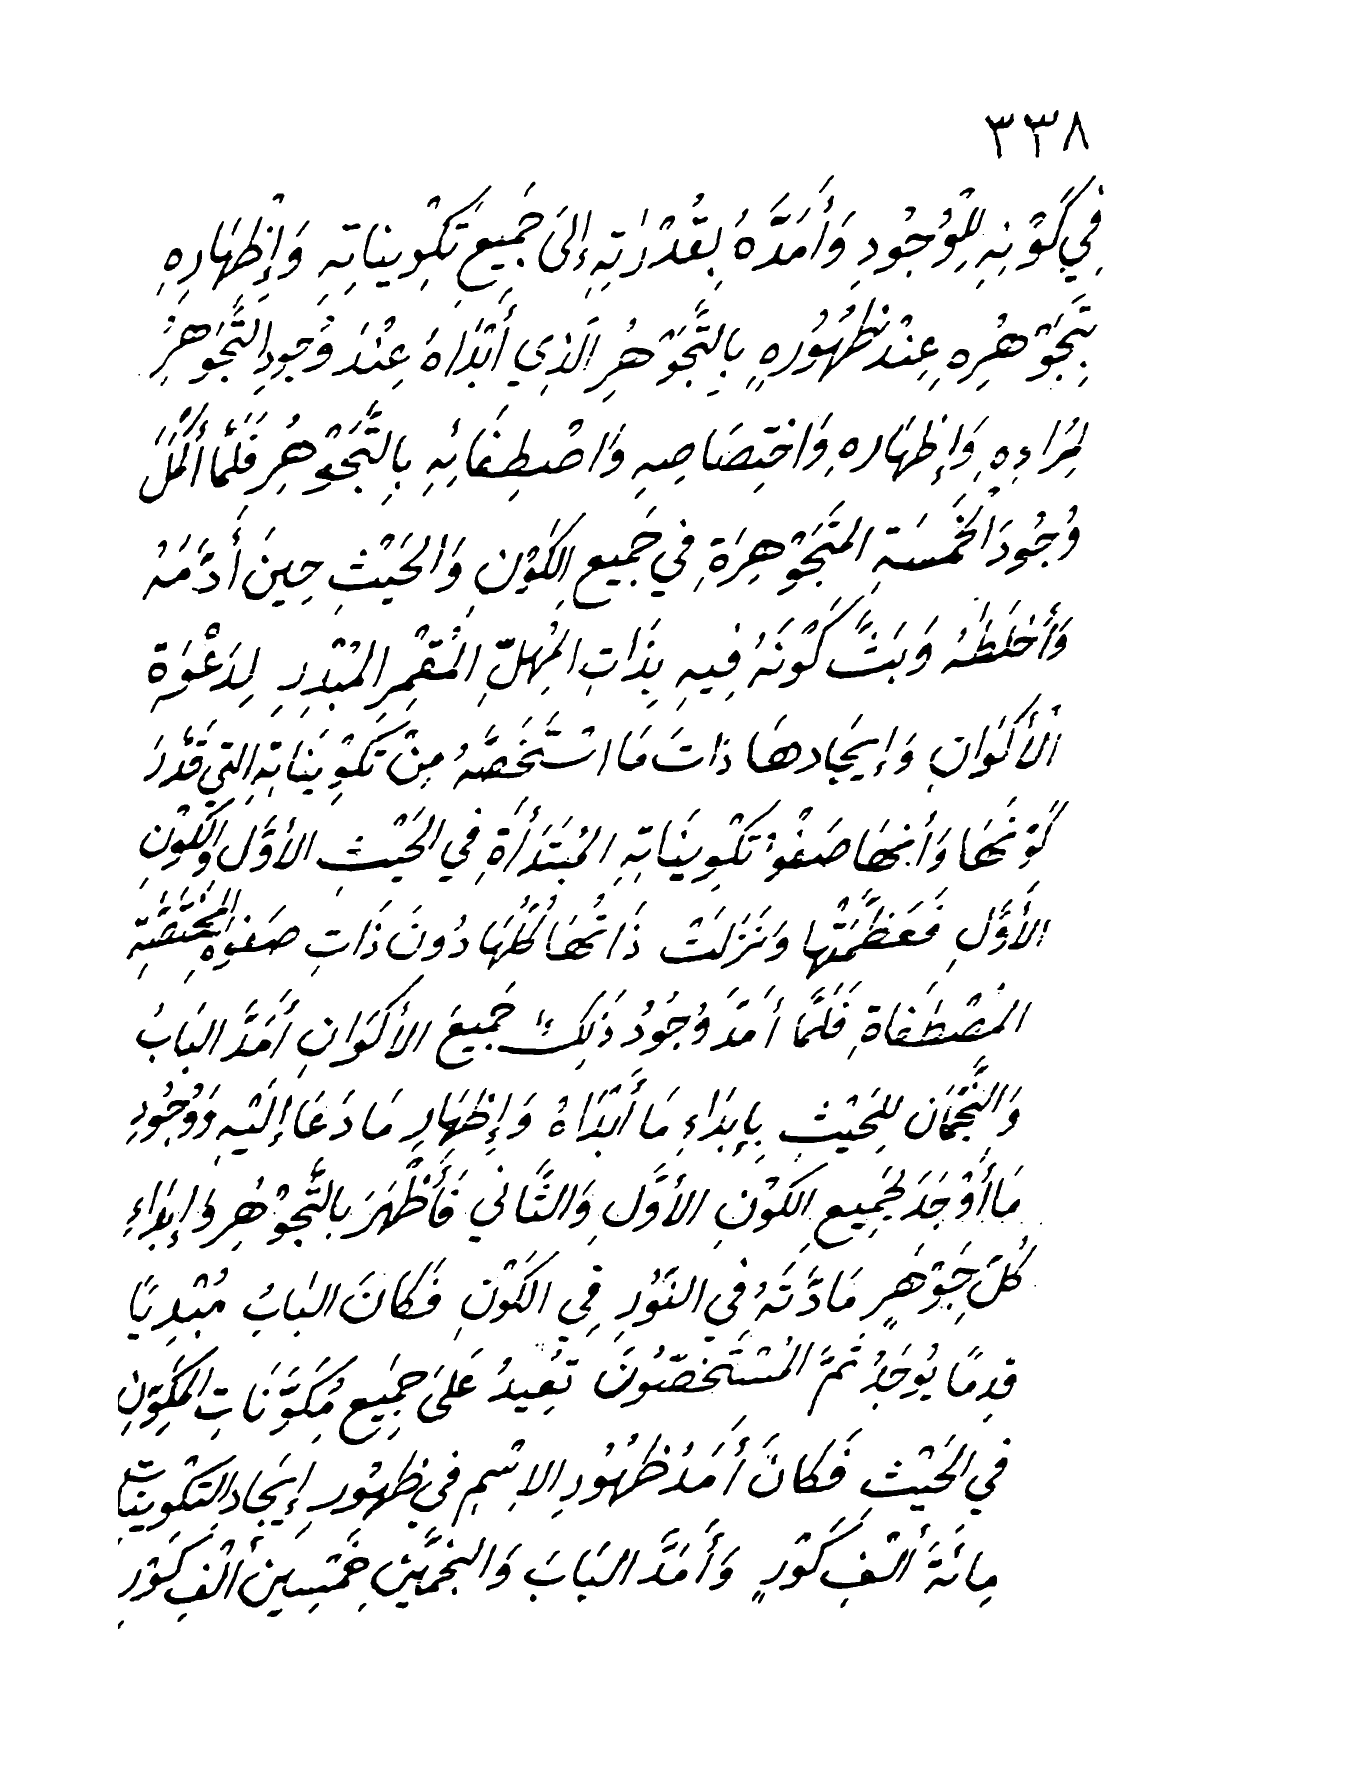 ٣٣٨
فِي كَوْنِهِ لِلْوُجُودِ وَأَمَدَّهُ بِقُدْرَتِهِ إِلىَ جَمِيعِ تَكْوِينَاتِهِ وَإِظْهَارِهِ
بِتَجَوْهُرِهِ عِنْدَ ظُهُورِهِ بِالتَّجَوْهُرِ الَّذِي أَبْدَاهُ عِنْدَ وُجُودِ التَّجَوْهُرِ
لِمُرَادِهِ وَإِظْهَارِهِ وَاخْتِصَاصِهِ وَاصْطِفَائِهِ بِالتَّجَوْهُرِ فَلَمَّا أَكْمَلَ
وُجُودَ الْخَمْسَةِ الْمُتَجَوْهِرَةِ فِي جَمِيعِ الكَوْنِ وَالْحَيْثِ حِينَ أَدَّمَهُ
وَأَخْلَطَهُ وَبَثَّ كَوْنَهُ فِيهِ بِذَاتِ الْمُهِلِّ الْمُقْمِرِ الْمُبْدِرِ لِدَعْوَةِ
الْأَكْوَانِ وَإِيجَادِهَا ذَاتَ مَا اسْتَخَصَّهُ مِنْ تَكْوِينَاتِهِ التِي قَدَّرَ
كَوْنَهَا وَأَنهَا صَفْوُ تَكْوِينَاتِهِ الْمُبْتَدَأَةِ فِي الْحَيْثِ الأَوَّلِ وَالْكَوْنِ
الأَوَّلِ فَعَظَّمَتْهَا وَنَزَلَتْ ذَاتُهَا كُلُّهَا دُونَ ذَاتِ صَفْوِهِ الْمُخْتَصَّةِ
الْمُصْطَفَاةِ فَلَمَّا أَمَدَّ وُجُودُ ذَلِكَ جَمِيعَ الأَكْوَانِ أَمَدَّ البَابُ
وَالنَّجْمَانِ لِلْحَيْثِ بِإِبْدَاءِ مَا أَبْدَاهُ وَإِظْهَارِ مَا دَعَا إِلَيْهِ وَوُجُودِ
مَا أَوْجَدَ لِجَمِيعِ الكَوْنِ الأَوَّلِ وَالثَّانِي فَأَظْهَرَ بِالتَّجَوْهُرِ وَإِبْدَاءِ
كُلِّ جَوْهَرٍ مَادَّتَهُ فِي النُّورِ فِي الكَوْنِ فَكَانَ البَابُ مُبْدِيًا
قِدمًا يُوجَدُ ثُمَّ الْمُسْتَخَصُّونَ تُعِيدُ عَلَى جَمِيعِ مُكَوَّنَاتِ الْمُكَوِّنِ
فِي الْحَيْثِ فَكَانَ أَمَدُ ظُهُورِ الِاسْمِ فِي ظُهُورِ إِيجَادِ التَكْوِينَاتِ
مِائَةَ أَلْفِ كَوْرٍ وَأَمَدَّ البَابَ وَالنجْمَيْنِ خَمْسِينَ أَلْفِ كَوْرٍ